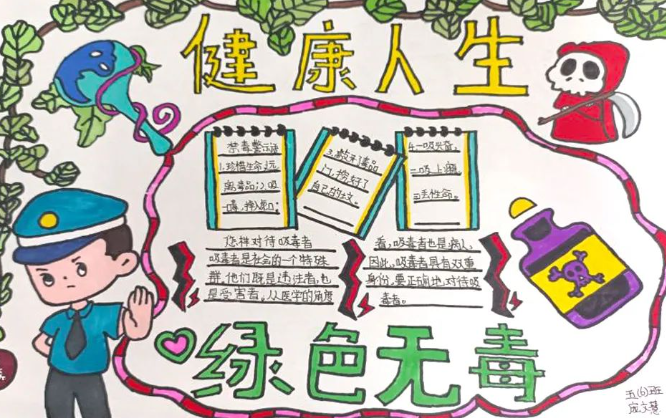 健康人生
禁毒警言
1.珍惜生命,远
离毒品;
4.一吸
二吸上瘾
三丢性命。
怎样对待吸毒者
吸毒者是社会的一个特殊
群,他们既是违法者,也
是受害者,从医学的角度
看,吸毒者也是病人,
因此,吸毒者具有双重
身份,要正确地对待吸
毒者。
绿色无毒
五(6)班